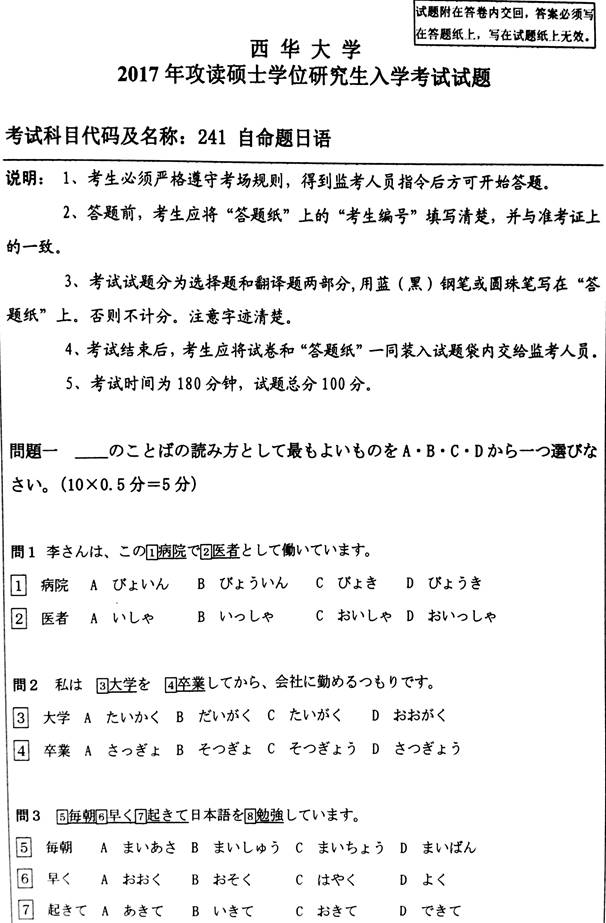 试题附在答卷内交回，答案必须写
在答题纸上，写在试题纸上无效。
西 华 大 学
2017 年攻读硕士学位研究生入学考试试题
考试科目代码及名称：241 自命题日语
说明： 1、考生必须严格遵守考场规则，得到监考人员指令后方可开始答题。
2、答题前，考生应将“答题纸”上的“考生编号”填写清楚，并与准考证上
的一致。
3、考试试题分为选择题和翻译题两部分,用蓝（黑）钢笔或圆珠笔写在“答
题纸”上。否则不计分。注意字迹清楚。
4、考试结束后，考生应将试卷和“答题纸”一同装入试题袋内交给监考人员。
5、考试时间为 180 分钟，试题总分 100 分。
問題一 ____のことばの読み方として最もよいものを A・B・C・D から一つ選びな
さい。(10×0.5 分＝5 分)
問 1 李さんは、この1病院で2医者として働いています。
1 病院 A びょいん B びょういん C びょき D びょうき
2 医者 A いしゃ B いっしゃ C おいしゃ D おいっしゃ
問 2 私は 3大学を 4卒業してから、会社に勤めるつもりです。
3 大学 A たいかく B だいがく C たいがく D おおがく
4 卒業 A さっぎょ B そつぎょ C そつぎょう D さつぎょう
問 3 5毎朝6早く7起きて日本語を8勉強しています。
5 毎朝 A まいあさ B まいしゅう C まいちょう D まいばん
6 早く A おおく B おそく C はやく D よく
7 起きて A あきて B いきて C おきて D できて